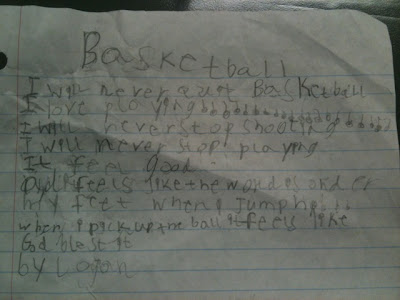 Basketball
I will never quit Basketball
I love playing
I will never stop shooting
I will never stop playing
It feel good
feels like the world is under
my feet when i jump
when i pick up the ball it feels like
God blest it
by Logan